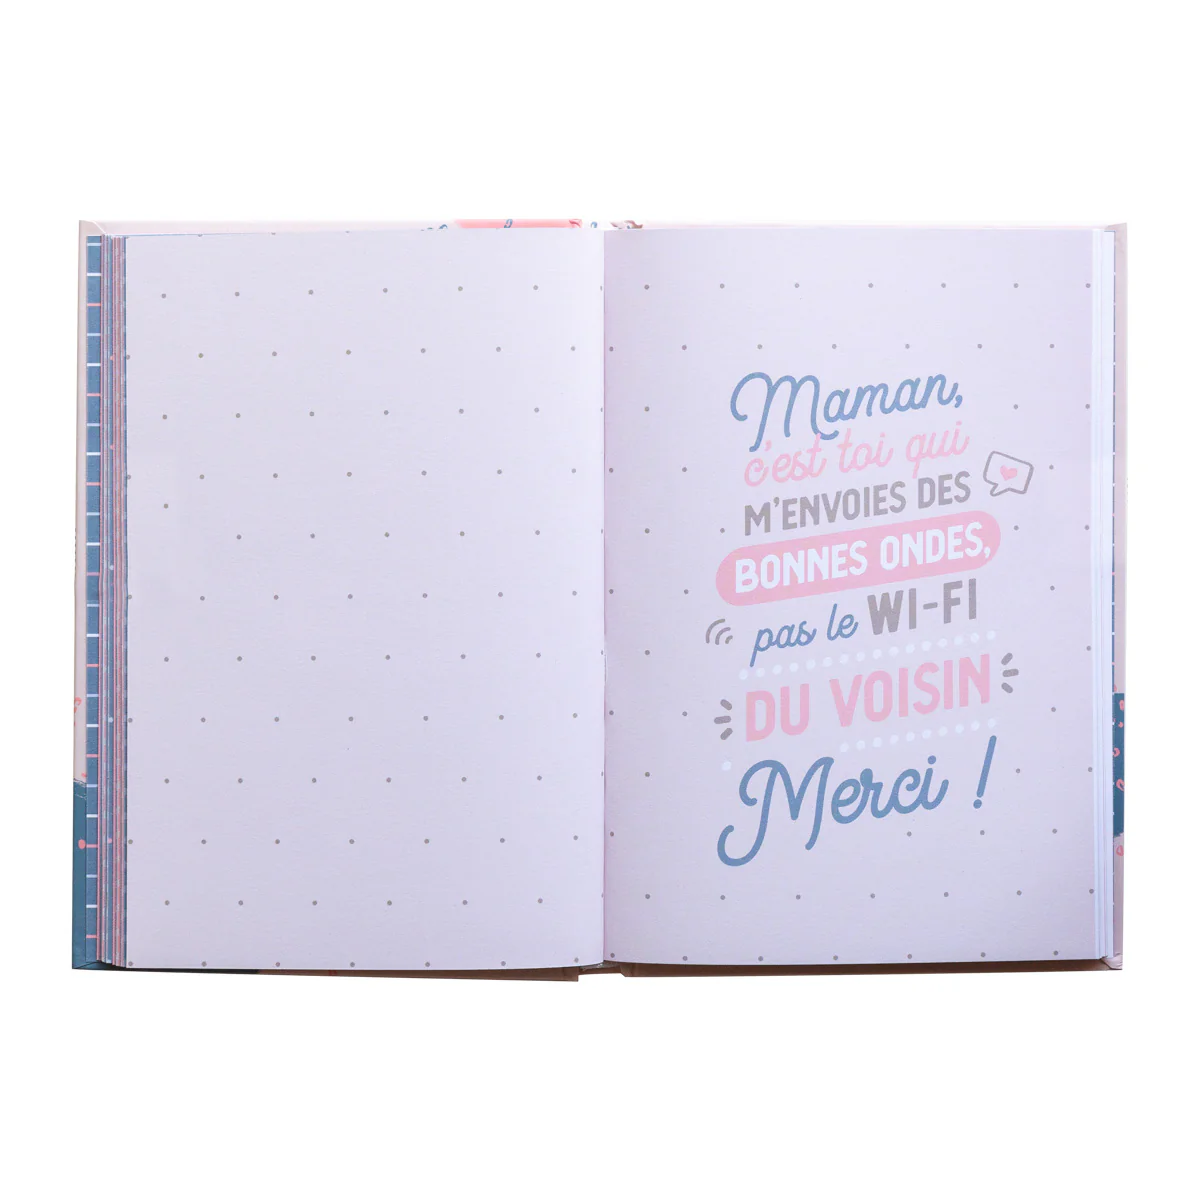 Maman,
c'est toi qui
M'ENVOIES DES
BONNES ONDES,
pas le WI-FI
DU VOISIN
Merci !